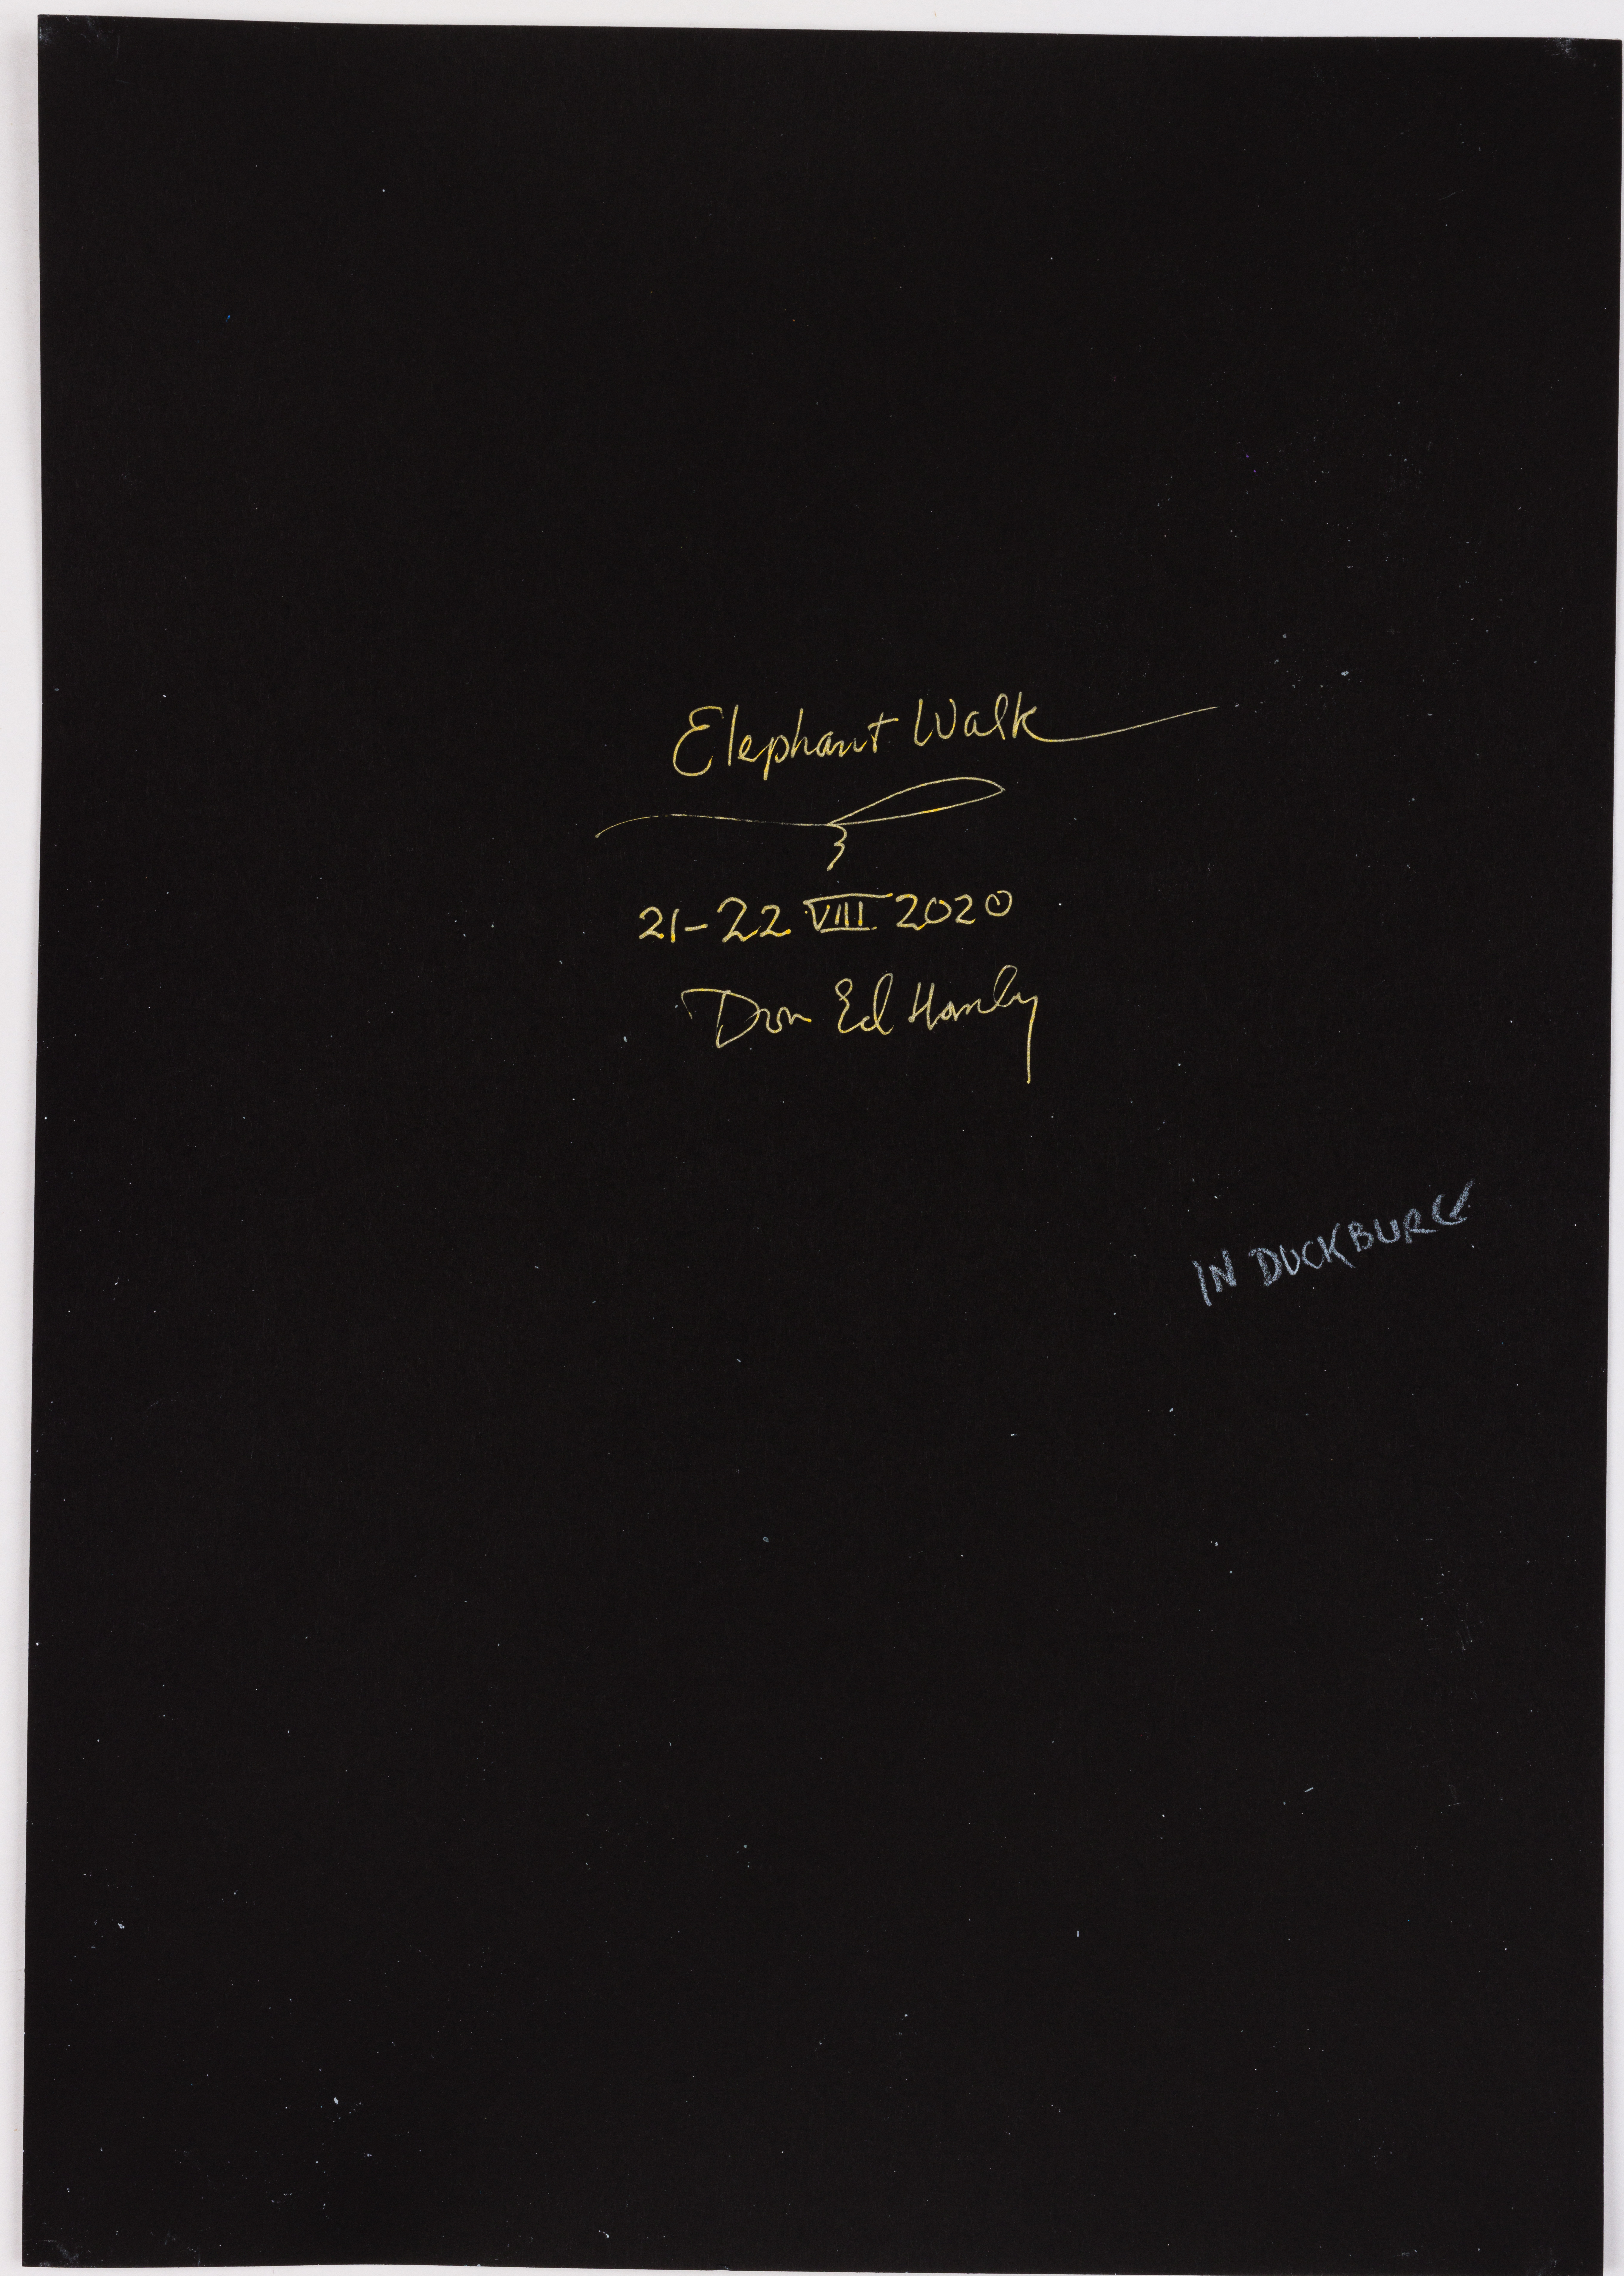 Elephant Walk
21-22 VIII 2020
Don Ed Hardy
IN DUCKBURG